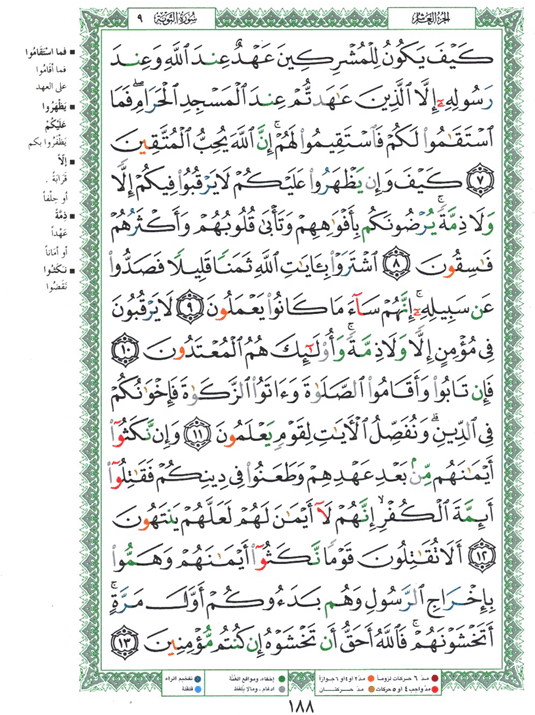 الجزء العاشر
سورة التوبة
٩
كَيْفَ يَكُونُ لِلْمُشْرِكِينَ عَهْدٌ عِندَ اللَّهِ وَعِندَ
رَسُولِهِۦٓ إِلَّا الَّذِينَ عَٰهَدتُّمْ عِندَ الْمَسْجِدِ الْحَرَامِ ۖ فَمَا
اسْتَقَٰمُوا لَكُمْ فَاسْتَقِيمُوا لَهُمْ ۚ إِنَّ اللَّهَ يُحِبُّ الْمُتَّقِينَ
٧ كَيْفَ وَإِن يَظْهَرُوا عَلَيْكُمْ لَا يَرْقُبُوا فِيكُمْ إِلًّا
وَلَا ذِمَّةً ۚ يُرْضُونَكُم بِأَفْوَٰهِهِمْ وَتَأْبَىٰ قُلُوبُهُمْ وَأَكْثَرُهُمْ
فَٰسِقُونَ ٨ اشْتَرَوْا بِـَٔايَٰتِ اللَّهِ ثَمَنًا قَلِيلًا فَصَدُّوا
عَن سَبِيلِهِۦٓ ۚ إِنَّهُمْ سَآءَ مَا كَانُوا يَعْمَلُونَ ٩ لَا يَرْقُبُونَ
فِي مُؤْمِنٍ إِلًّا وَلَا ذِمَّةً ۚ وَأُو۟لَٰٓئِكَ هُمُ الْمُعْتَدُونَ ١٠
فَإِن تَابُوا وَأَقَامُوا الصَّلَوٰةَ وَءَاتَوُا الزَّكَوٰةَ فَإِخْوَٰنُكُمْ
فِي الدِّينِ ۗ وَنُفَصِّلُ الْآيَٰتِ لِقَوْمٍ يَعْلَمُونَ ١١ وَإِن نَّكَثُوٓا
أَيْمَٰنَهُم مِّنۢ بَعْدِ عَهْدِهِمْ وَطَعَنُوا فِي دِينِكُمْ فَقَٰتِلُوٓا
أَئِمَّةَ الْكُفْرِ ۙ إِنَّهُمْ لَآ أَيْمَٰنَ لَهُمْ لَعَلَّهُمْ يَنتَهُونَ
١٢ أَلَا تُقَٰتِلُونَ قَوْمًا نَّكَثُوٓا أَيْمَٰنَهُمْ وَهَمُّوا
بِإِخْرَاجِ الرَّسُولِ وَهُم بَدَءُوكُمْ أَوَّلَ مَرَّةٍ ۚ
أَتَخْشَوْنَهُمْ ۚ فَاللَّهُ أَحَقُّ أَن تَخْشَوْهُ إِن كُنتُم مُّؤْمِنِينَ ١٣
■ فما استقاموا
فما أقاموا
على العهد
■ يَظْهَرُوا
عَلَيْكُمْ
يَظْفَرُوا بكم
■ إِلًّا
قَرَابَةً
أو حِلْفاً
■ ذِمَّةً
عَهْداً
أو أماناً
■ نكثوا
نَقَضُوا
مد ٦ حركات لزوماً
مد ٢ أو ٤ أو ٦ جوازاً
إخفاء، ومواقع الغنّة
تفخيم الراء
مد واجب ٤ أو ٥ حركات
مد حركتان
ادغام، ومالا يُلفظ
قلقلة
١٨٨